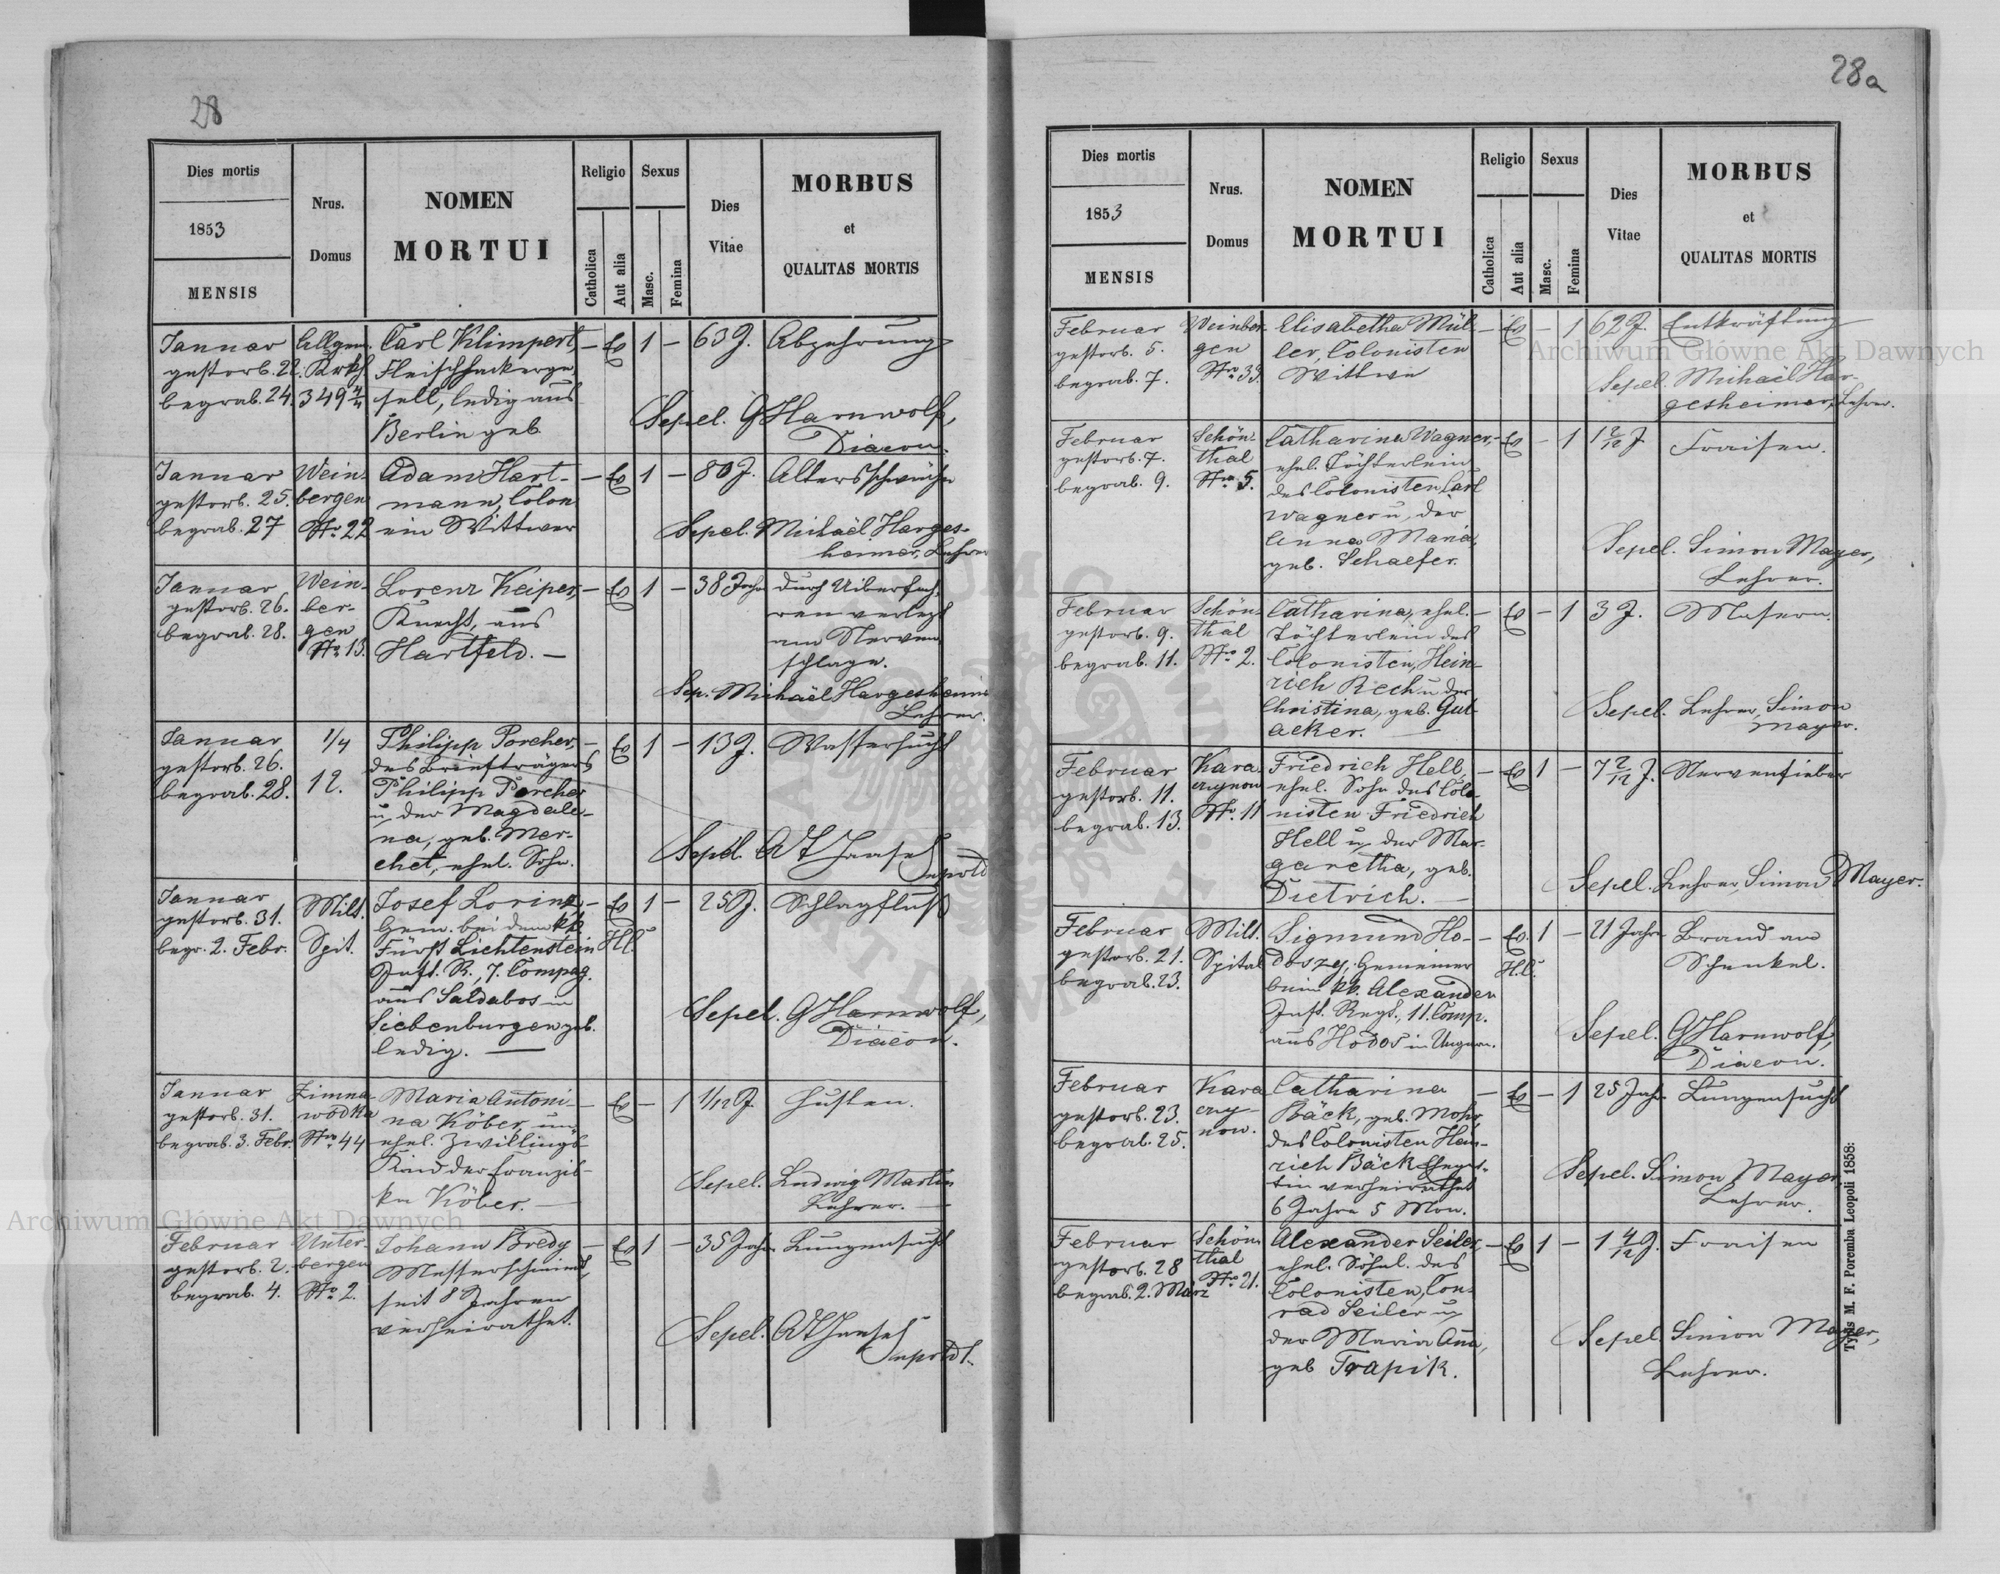 28
Dies mortis
1853
MENSIS
Nrus.
Domus
NOMEN
MORTUI
Religio
Catholica
Aut alia
Sexus
Masc.
Femina
Dies
Vitae
MORBUS
et
QUALITAS MORTIS
Januar
gestorb. 22.
begrab. 24.
Allgm.
Krkh.
349 4/4
Carl Klimpert,
Fleischhackerge-
sell, ledig aus
Berlin geb.
— Ev 1 — 63 J. Abzehrung
Sepel. G Harnwolf,
Diacon.
Januar
gestorb. 25.
begrab. 27
Wein-
bergen
Nro 22
Adam Hart-
mann, Colon
ein Wittwer
— Ev 1 — 80 J. Altersschwäche
Sepel. Michaël Harges-
heimer, Lehrer
Januar
gestorb. 26.
begrab. 28.
Wein-
ber-
gen
Nro 13.
Lorenz Keiper,
Knecht, aus
Hartfeld. —
— Ev 1 — 38 Jahr durch Uiberfah-
ren verletzt
am Nerven
schlage.
Sep. Michaël Hargesheimer
Lehrer.
Januar
gestorb. 26.
begrab. 28.
1/4
12.
Philipp Porcher,
des Briefträgers
Philipp Porcher
u. der Magdale-
na, geb. Mer-
chet, ehel. Sohn.
— Ev 1 — 13 J. Wassersucht
Sepel.
Januar
gestorb. 31.
begr. 2. Febr.
Milit.
Spit.
Josef Lorinz
Gem. bei dem kk.
Fürst Lichtenstein
Inft. R., 7. Compag.
aus Saldabos in
Siebenburgen geb.
ledig. —
— Ev 1 — 25 J. Schlagfluß
H.C.
Sepel. G Harnwolf,
Diacon.
Januar
gestorb. 31.
begrab. 3. Febr.
Zimna-
wodka
Nro 44
Maria Antoni-
na Köber, un-
ehel. Zwillings-
Kind der Franzis-
ka Köber. —
— Ev — 1 1/12 J. Husten.
Sepel. Ludwig Martin
Lehrer. —
Februar
gestorb. 2.
begrab. 4.
Unter-
bergen
Nro 2.
Johann Bredy
Messerschmied,
seit 8 Jahren
verheirathet.
— Ev 1 — 35 Jahr Lungensucht
Sepel.
28a
Dies mortis
1853
MENSIS
Nrus.
Domus
NOMEN
MORTUI
Religio
Catholica
Aut alia
Sexus
Masc.
Femina
Dies
Vitae
MORBUS
et
QUALITAS MORTIS
Februar
gestorb. 5.
begrab. 7.
Weinber-
gen
Nro 33.
Elisabetha Mül-
ler, Colonisten
Wittwe
— Ev — 1 62 J. Entkräftung
Sepel. Michaël Har-
gesheimer, Lehrer.
Februar
gestorb. 7.
begrab. 9.
Schön-
thal
Nro 5.
Catharina Wagner,
ehel. Töchterlein
des Colonisten, Carl
Wagner u. der
Anna Maria,
geb. Schaefer.
— Ev — 1 1 2/12 J Fraisen.
Sepel. Simon Mayer,
Lehrer.
Februar
gestorb. 9.
begrab. 11.
Schön-
thal
Nro 2.
Catharina, ehel.
Töchterlein des
Colonisten, Hein-
rich Rech u der
Christina, geb. Gut-
acker. —
— Ev — 1 3 J. Masern.
Sepel. Lehrer, Simon
Mayer.
Februar
gestorb. 11.
begrab. 13.
Kara-
czynow
Nro 11
Friedrich Hell,
ehel. Sohn des Colo-
nisten Friedrich
Hell u. der Mar-
garetha, geb.
Dietrich. —
— Ev 1 — 7 2/12 J. Nervenfieber
Sepel. Lehrer, Simon Mayer.
Februar
gestorb. 21.
begrab. 23.
Milit.
Spital
Sigmund Ho-
doszy, Gemeiner
beim kk. Alexander
Inft. Regt., 11. Comp.
aus Hodos in Ungarn.
— Ev. 1 — 21 Jahr Brand am
H.C. Schenkel.
Sepel. G Harnwolf,
Diacon.
Februar
gestorb. 23.
begrab. 25.
Kara
czy-
now.
Catharina
Bäck, geb. Mohr,
des Colonisten Hein-
rich Bäck Ehegat-
tin verheirathet
6 Jahre 5 Mon.
— Ev — 1 25 Jahr Lungensucht
Sepel. Simon Mayer
Lehrer.
Februar
gestorb. 28
begrab. 2. März
Schön-
thal
Nro 21.
Alexander Seiler,
ehel. Söhnl. des
Colonisten, Con-
rad Seiler u.
der Maria Ana,
geb Trapik.
— Ev 1 — 1 4/12 J. Fraisen
Sepel. Simon Mayer,
Lehrer.
Typis M. F. Poremba Leopoli 1858:
Archiwum Główne Akt Dawnych
Archiwum Główne Akt Dawnych